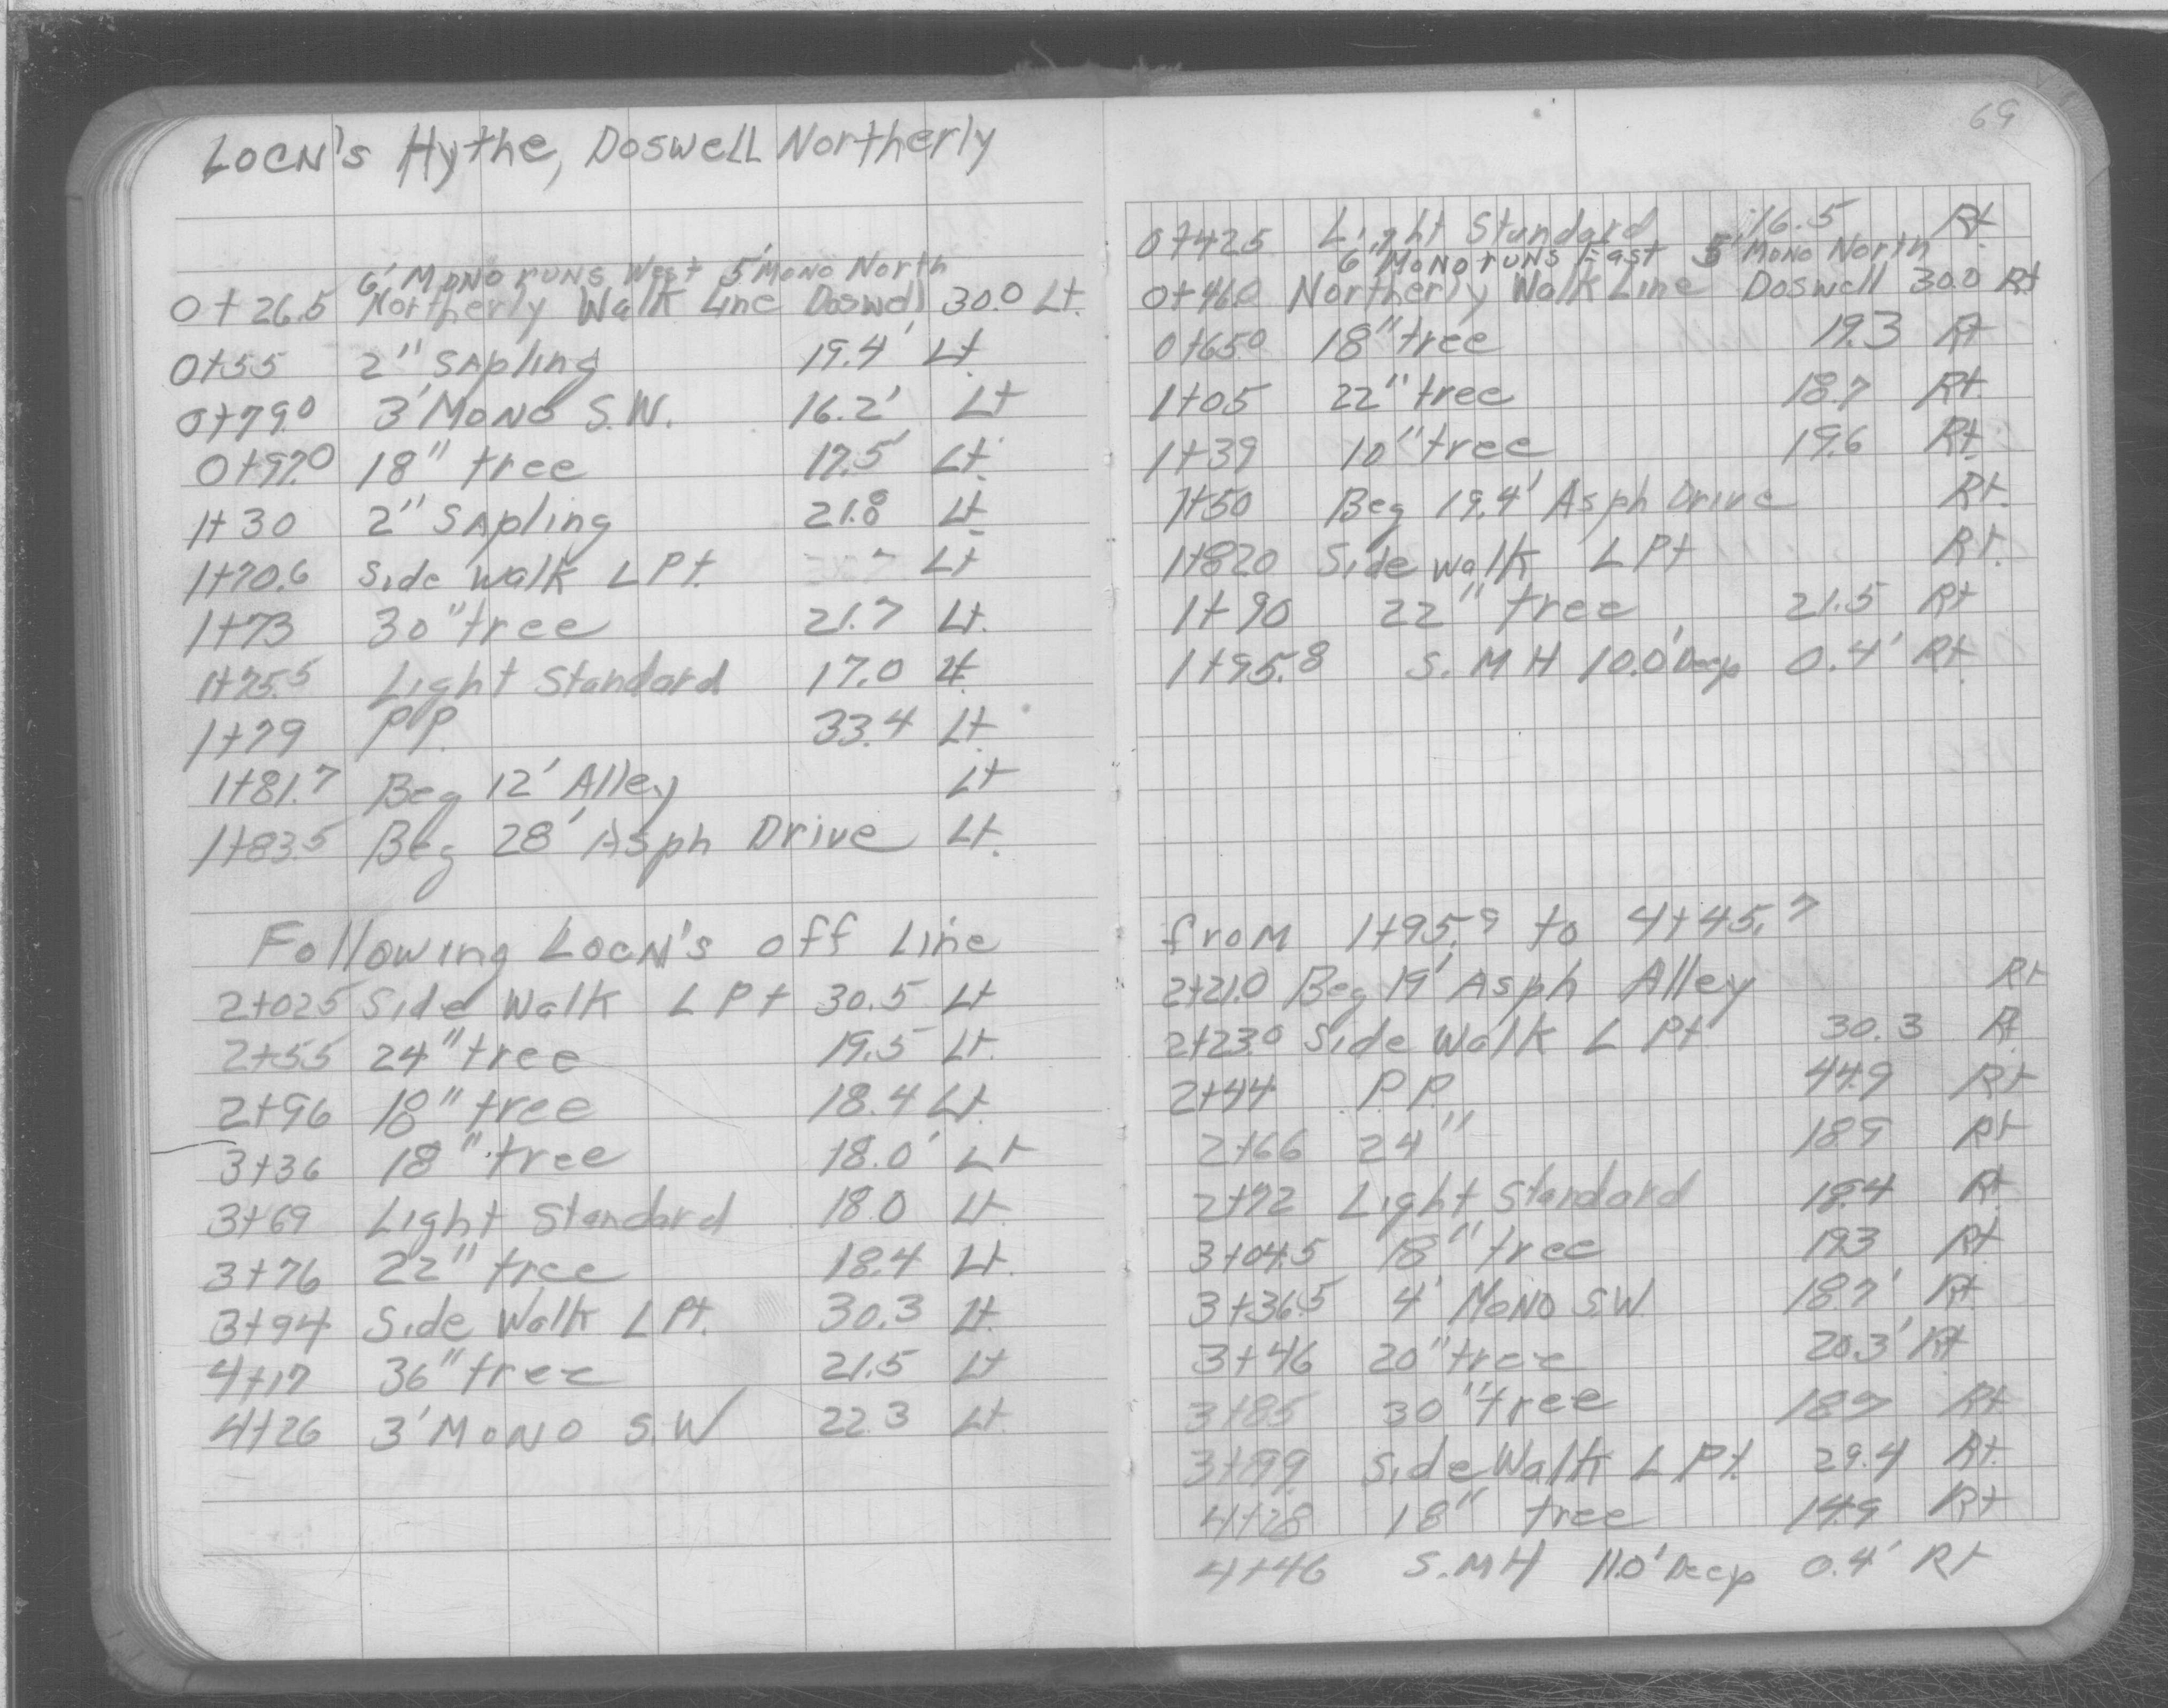 Locn's Hythe, Doswell Northerly
6' Mono runs West 5' Mono North
0+26.5 Northerly Walk Line Doswell 30.0 Lt.
0+55 2" Sapling 19.4' Lt.
0+79.0 3' Mono S.W. 16.2' Lt
0+97.0 18" tree 17.5' Lt.
1+30 2" Sapling 21.8 Lt
1+70.6 Side walk L Pt. Lt
1+73 30" tree 21.7 Lt.
1+75.5 Light Standard 17.0 Lt.
1+79 P.P. 33.4 Lt.
1+81.7 Beg 12' Alley Lt
1+83.5 Beg 28' Asph Drive Lt.
Following Locn's off Line
2+025 Side Walk L Pt 30.5 Lt
2+55 24" tree 19.5 Lt.
2+96 18" tree 18.4 Lt.
3+36 18" tree 18.0' Lt
3+69 Light Standard 18.0 Lt.
3+76 22" tree 18.4 Lt.
3+94 Side Walk L Pt. 30.3 Lt.
4+17 36" tree 21.5 Lt
4+26 3' Mono S.W 22.3 Lt.
69
0+425 Light Standard 16.5 Rt
6' Mono runs East 5' Mono North
0+460 Northerly Walk Line Doswell 30.0 Rt
0+650 18" tree 19.3 Rt
1+05 22" tree 18.7 Rt.
1+39 10" tree 19.6 Rt.
1+50 Beg 19.4' Asph Drive Rt.
1+820 Side walk L Pt Rt.
1+90 22" tree 21.5 Rt
1+95.8 S.M H 10.0' Deep 0.4' Rt.
from 1+95.9 to 4+45.7
2+21.0 Beg 19' Asph Alley Rt
2+23.0 Side Walk L Pt 30.3 Rt
2+44 P.P. 44.9 Rt
2+66 24" 189 Rt
2+72 Light Standard 18.4 Rt.
3+04.5 18" tree 193 Rt
3+36.5 4' Mono S.W. 18.7' Rt.
3+46 20" tree 20.3' Rt
3+85 30" tree 187 Rt
3+99 Side Walk L Pt. 29.4 Rt.
4+28 18" tree 14.9 Rt
4+46 S.MH 11.0' Deep 0.4' Rt